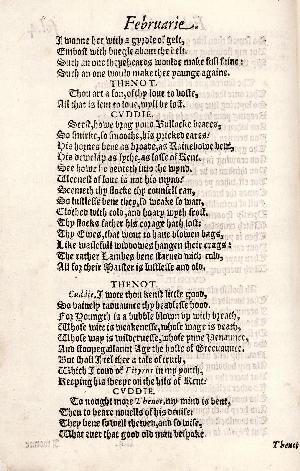 Februarie.
I wonne her with a gyrdle of gelt,
Embost with buegle about the belt.
Such an one shepeheards woulde make full faine:
Such an one would make thee younge againe.
THENOT.
Thou art a fon, of thy loue to boste,
All that is lent to loue, wyll be lost.
CVDDIE.
Seest, howe brag yond Bullocke beares,
So smirke, so smoothe, his pricked eares?
His hornes bene as broade, as Rainebowe bent,
His dewelap as lythe, as lasse of Kent.
See howe he venteth into the wynd.
Weenest of loue is not his mynd?
Seemeth thy flocke thy counsell can,
So lustlesse bene they, so weake so wan,
Clothed with cold, and hoary wyth frost.
Thy flocks father his corage hath lost:
Thy Ewes, that wont to haue blowen bags,
Like wailefull widdowes hangen their crags:
The rather Lambes bene starued with cold,
All for their Maister is lustlesse and old.
THENOT.
Cuddie, I wote thou kenst little good,
So vainely taduaunce thy headlesse hood.
For Youngth is a bubble blown vp with breath,
Whose witt is weakenesse, whose wage is death,
Whose way is wildernesse, whose ynne Penaunce,
And stoopegallaunt Age the hoste of Greeuaunce.
But shall I tel thee a tale of truth,
Which I cond of Tityrus in my youth,
Keeping his sheepe on the hils of Kent?
CVDDIE.
To nought more Thenot, my mind is bent,
Then to heare nouells of his deuise:
They bene so well thewed, and so wise,
What euer that good old man bespake.
Thenot